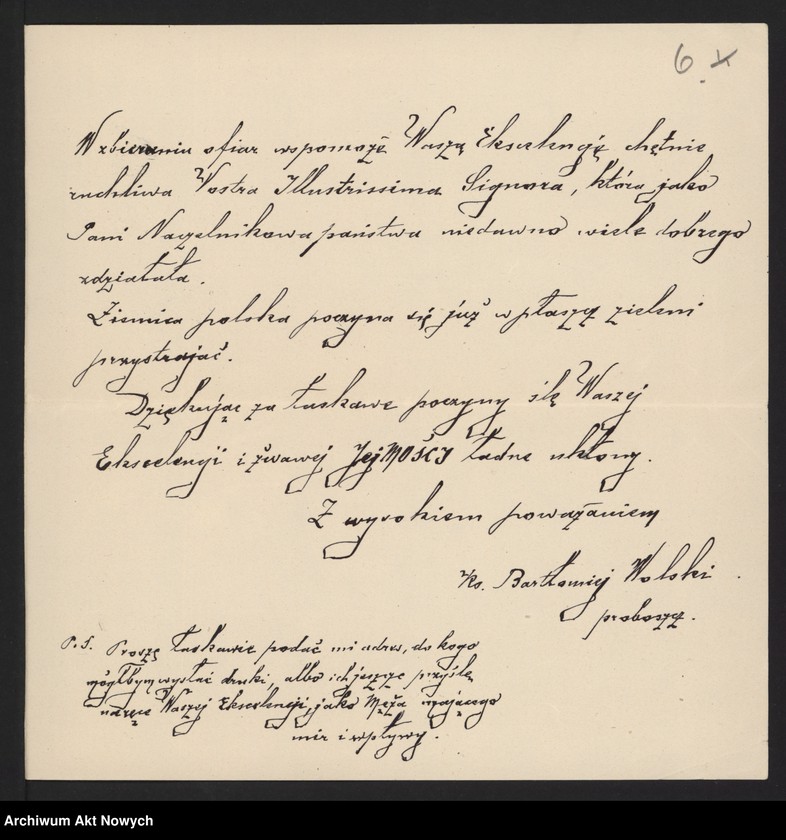 6. x
W zbieraniu ofiar wspomoże Waszą Ekscelencję chętnie
ruchliwa Vostra Illustrissima Signora, która jako
Pani Naczelnikowa państwa niedawno wiele dobrego
zdziałała.
Ziemica polska poczyna się już w płaszcz zieleni
przystrajać.
Dziękując za łaskawe poczyny ślę Waszej
Ekscelencji i żwawej JejMOŚCI ładne ukłony.
Z wysokiem poważaniem
Ks. Bartłomiej Wolski
proboszcz.
P.S. Proszę łaskawie podać mi adres, do kogo
mógłbym wysłać druki, albo ich jeszcze przyślę
na ręce Waszej Ekscelencji, jako Męża mającego
mir i wpływy.
Archiwum Akt Nowych